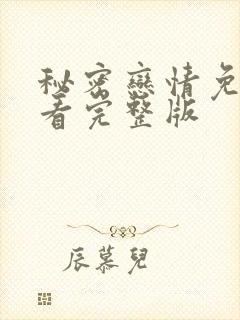 秘密戀情免
看完整版
辰慕兒